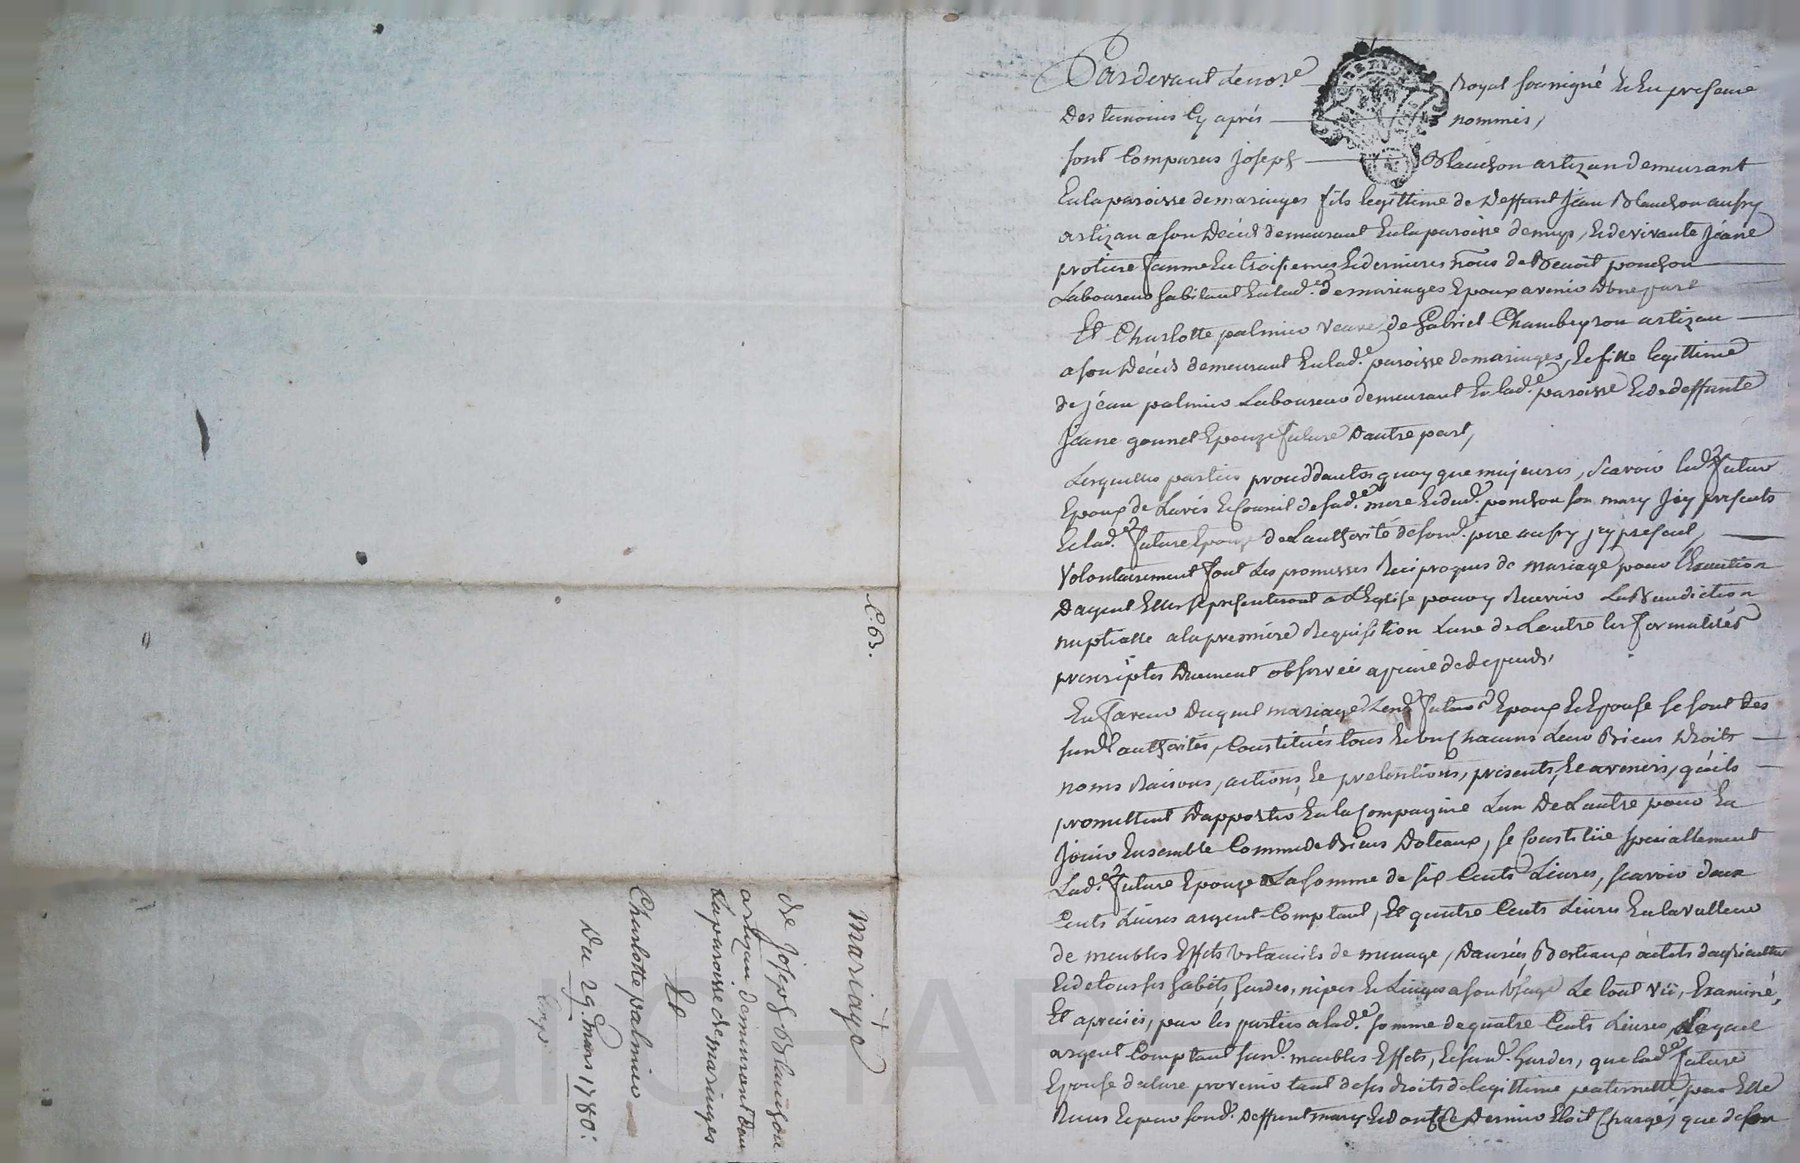 Pardevant le no.re Royal soussigné & En presence
Des temoins Cy aprés nommés,
sont Comparus joseph Blanchon artizan demeurant
En la paroisse de maringes fils legittime de Deffunt Jean Blanchon aussy
artizan a son Décés demeurant En la paroisse de , & de vivante Jeane
protiere femme En troisiemes & dernieres nous de Benoit ponchon
Laboureur habitant En lad.e de maringes Epoux avenir D'une part
Et Charlotte palmier veuve de Gabriel Chambeyron artizan
a son Décés demeurant En lad.e paroisse de maringes, & fille legittime
de jéan palmier Laboureur demeurant En lad.e paroisse & de deffunte
Jeane gounet Epouze future D'autre part,
Lesquelles parties proceddantes quoy que majeures, scavoir led. futur
Epoux de L'avis & Conseil de sad.e mere & dud. ponchon son mary Jcy presents
& lad.e future Epouze de L'authorité de sond. pere aussy jcy present,
Volontairement font Les promesses Reciproques de mariage pour L'Execution
Duquel Elles se presenteront a L'Eglise pour y Recevoir La Benediction
nuptialle a la premiere Requisition L'une de L'autre les formalités
prescriptes Duement observées a peine de depends.
En faveur Duquel mariage Lesd. futurs Epoux & Epouse se sont Des
susd. authorités, Constitués tous & un Chacuns Leur Biens Droits
noms Raisons, actions, & pretentions, présents, & avenirs, qu'ils
promettent D'apporter En la Compagnie L'un De L'autre pour En
Jouir Ensemble Comme de Biens Doteaux, se Constitüe speciallement
Lad.e future Epouze La somme de six Cents Livres, scavoir deux
Cents Livres argent Comptant, Et quatre Cents Livres En la valleur
de meubles Effets Ustancils de menage, Danrées Bestiaux outils d'agriculture
& de tous ses habits, hardes, nipes & Linges a son Usage Le tout vü, Examiné,
Et apreciés, par les parties a lad.e somme de quatre Cents Livres, Lequel
argent Comptant susd. meubles Effets, & susd. hardes, que lad.e future
Epouse declare provenir tant de ses droits de legittime paternelle par Elle
Recus & par sond. Deffunt mary & dont Ce Dernier Etoit Chargé, que de son
C. B.
mariage
de Joseph Blanchon
artizan demeurant dans
La paroisse de maringes
Et
Charlotte palmier
Du 29.e mars 1780.